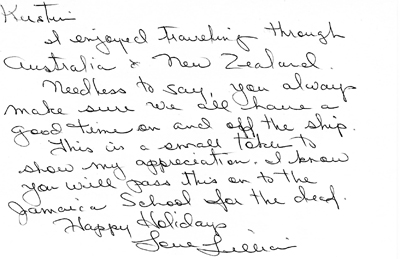 Kristin
I enjoyed traveling through
Australia & New Zealand.
Needless to say, you always
make sure we all have a
good time on and off the ship.
This is a small token to
show my appreciation. I know
you will pass this on to the
Jamaica School for the deaf.
Happy Holidays
Love Lillian